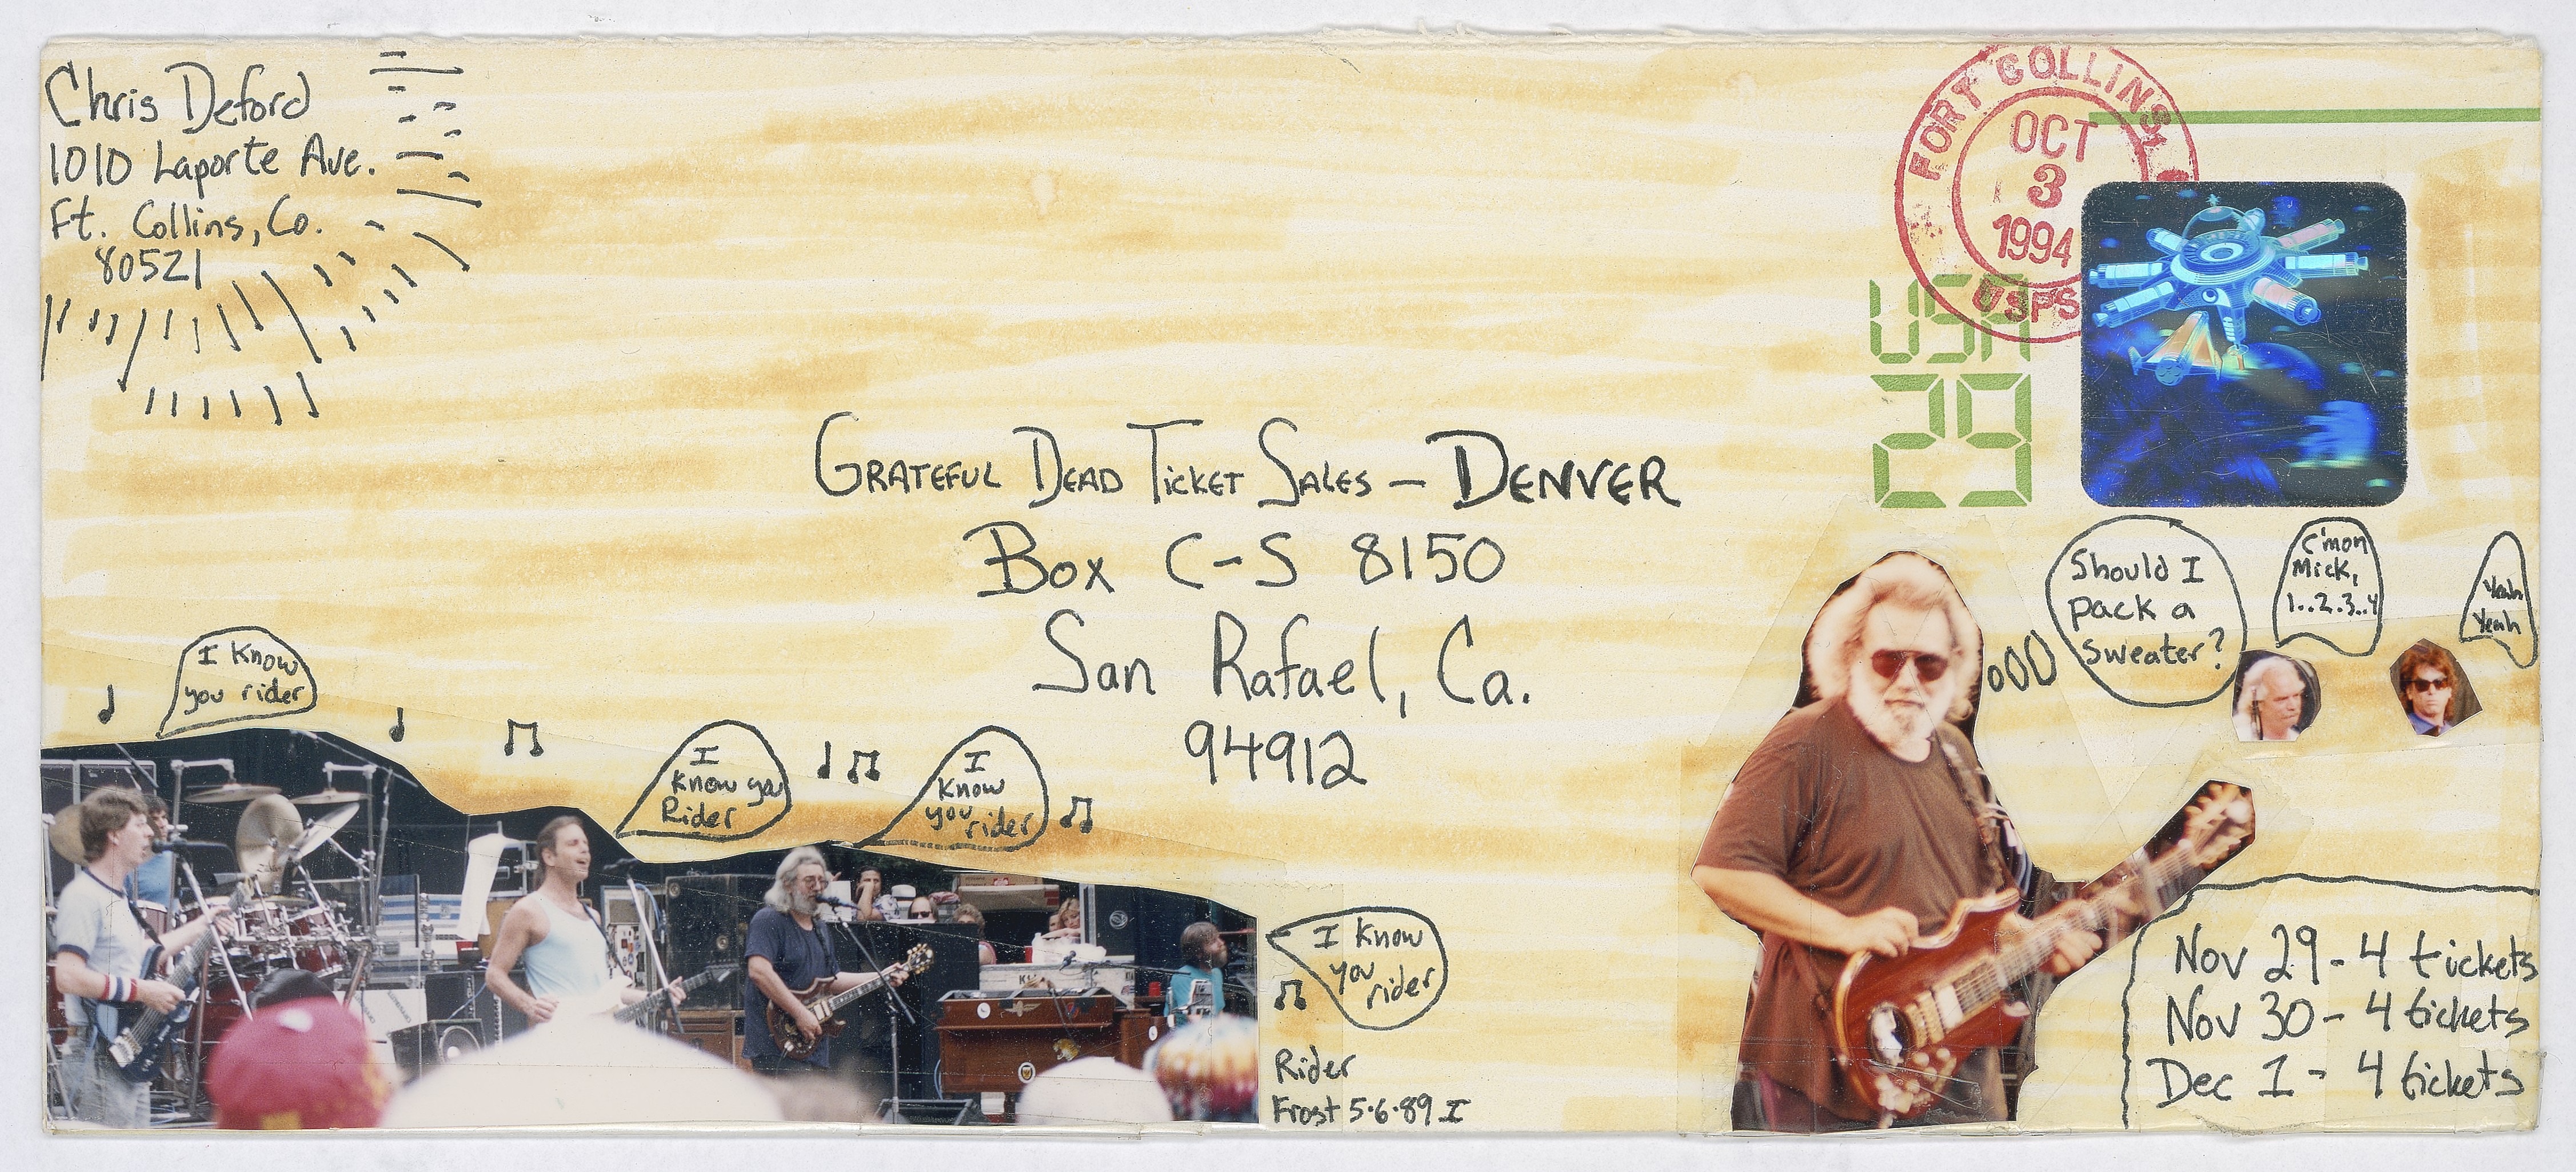 Chris Deford
1010 Laporte Ave.
Ft. Collins, Co.
80521
FORT COLLINS,
OCT
3
1994
USPS
USA
29
GRATEFUL DEAD TICKET SALES - DENVER
Box C-S 8150
San Rafael, Ca.
94912
Should I
pack a
sweater?
C'mon
Mick,
1..2.3..4
Yeah
Yeah
I know
you rider
I
know you
Rider
I
know
you rider
I know
you
rider
Rider
Frost 5.6.89 I
Nov 29 - 4 tickets
Nov 30 - 4 tickets
Dec 1 - 4 tickets